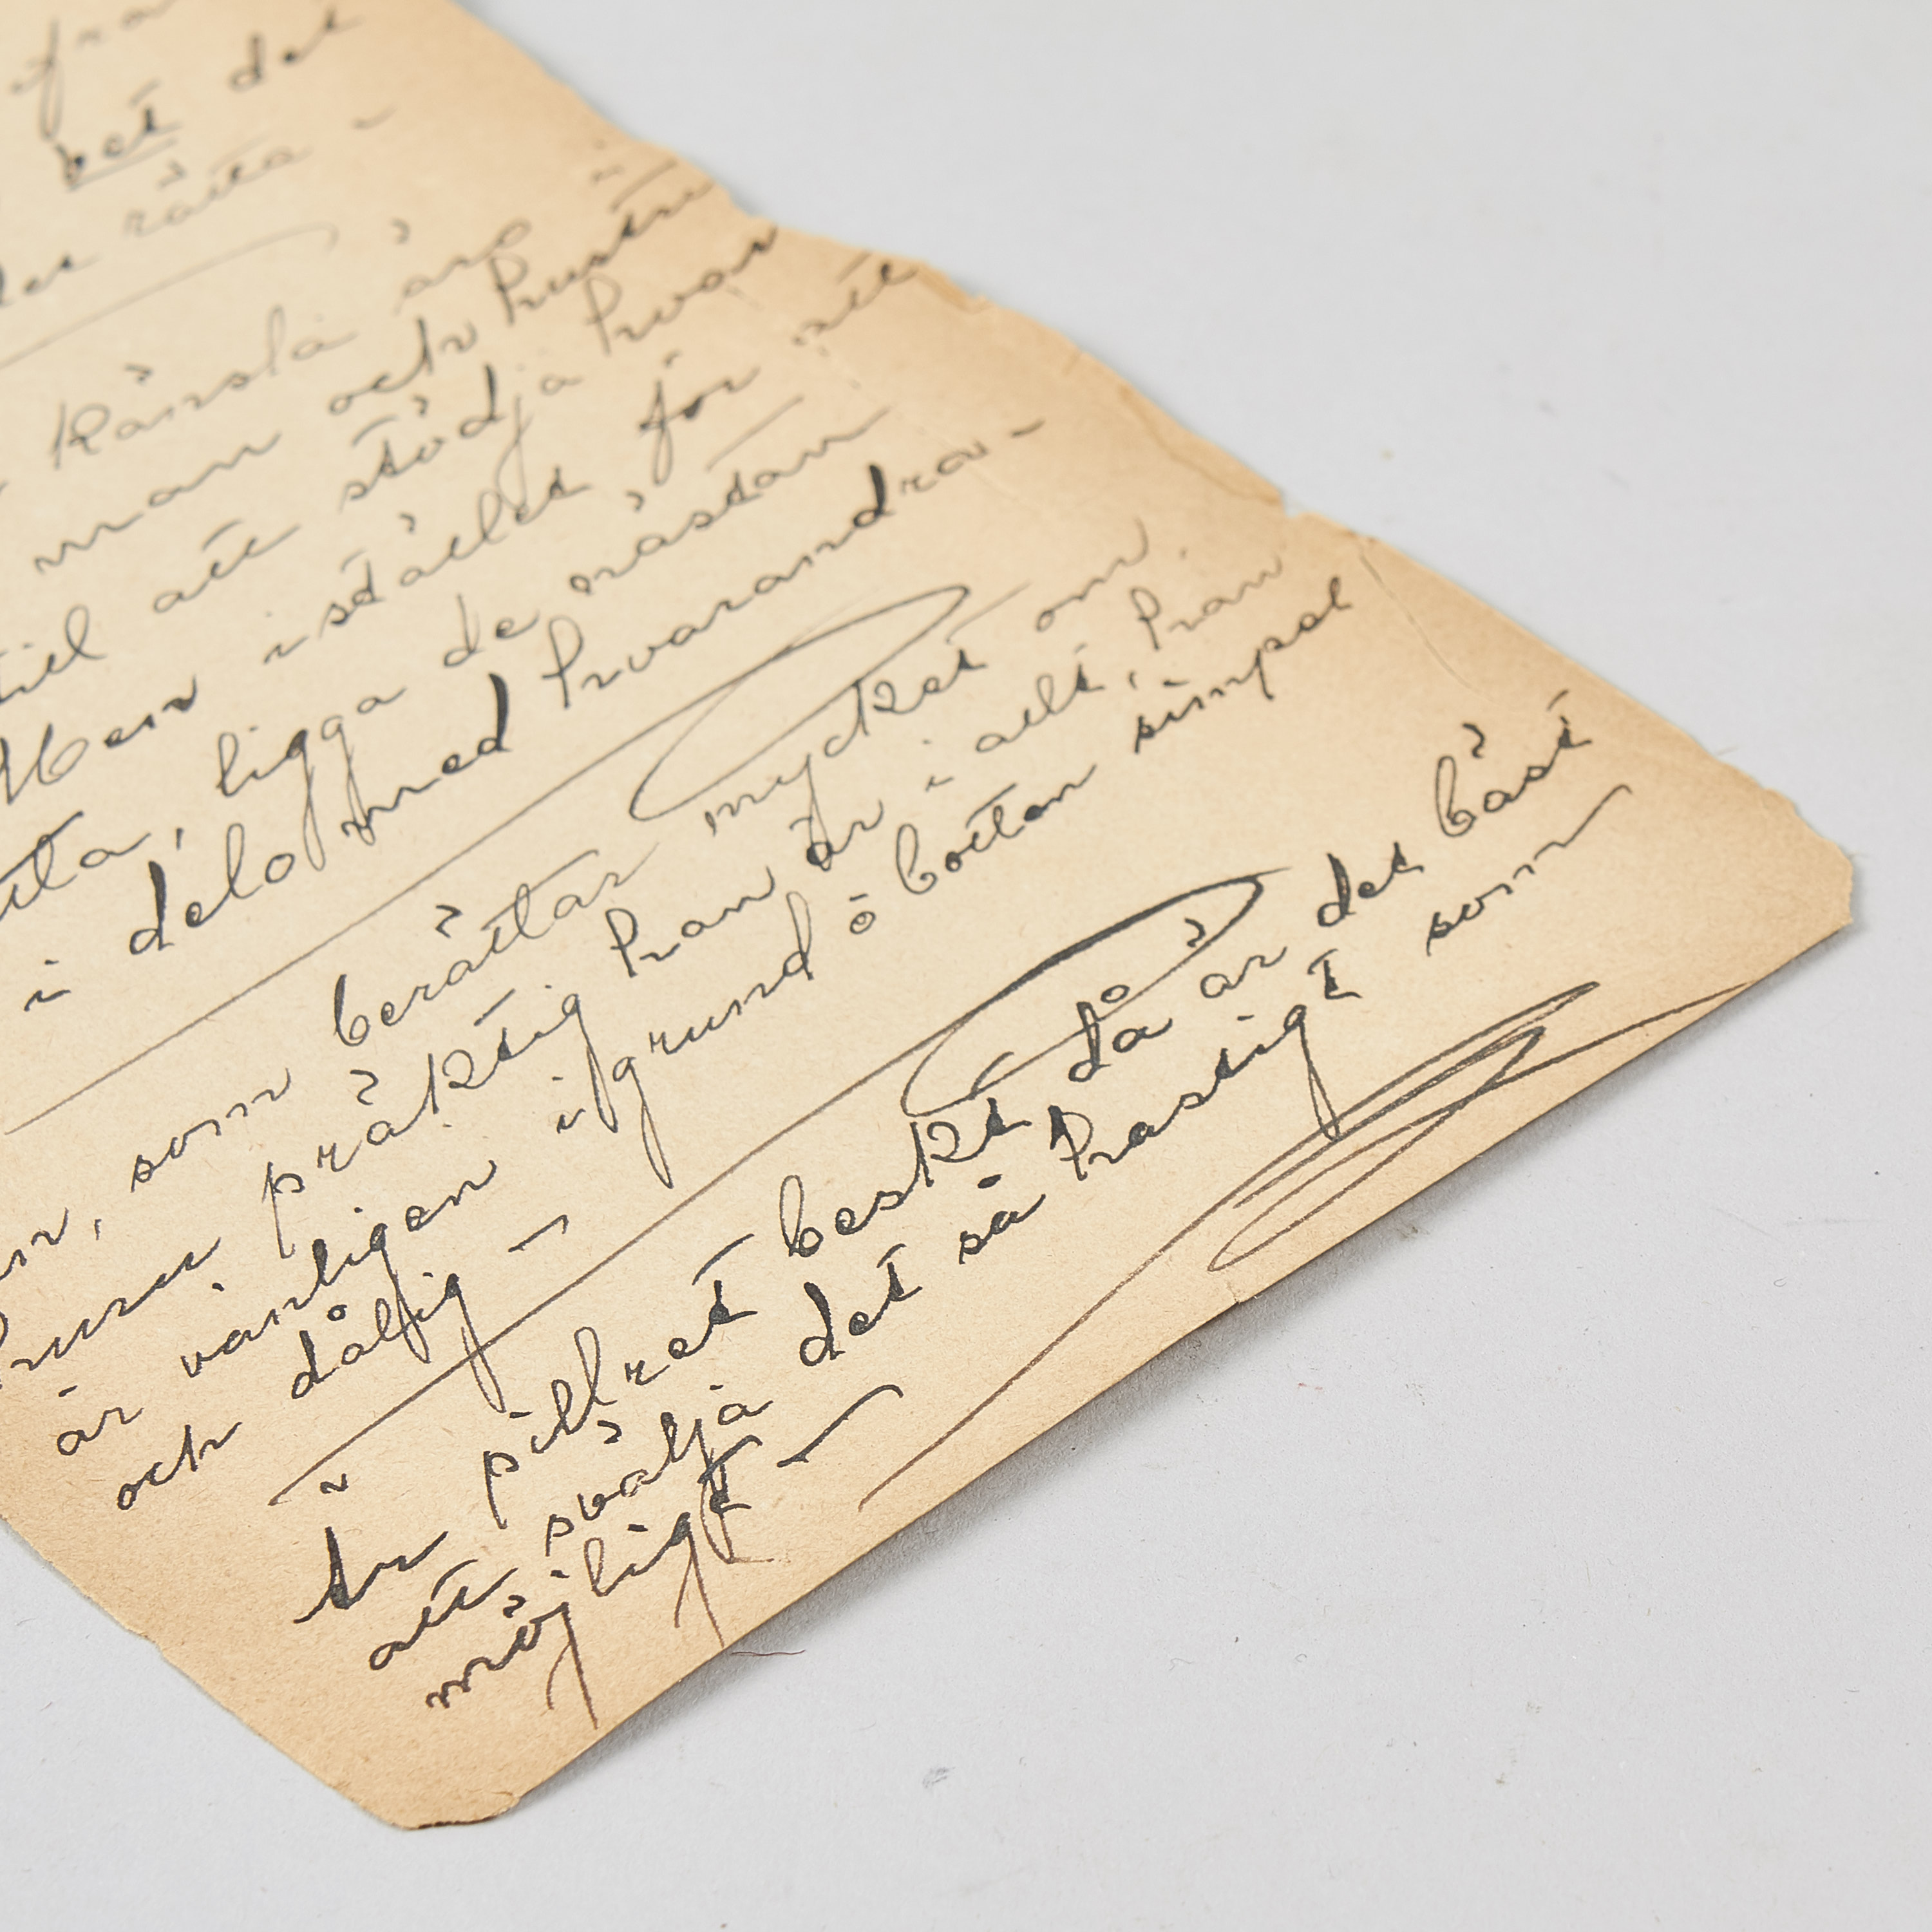 ifrån
ket det
det rätta -
känsla äro
man och hustru
till att stödja hvar
Men istället för att
ligga de nästan
i delo med hvarandra -
som berättar mycket om
huru präktig han är i allt, han
är vanligen i grund o botten simpel
och dålig —
Är pillret beskt då är det bäst
att svälja det så hastigt som
möjligt —